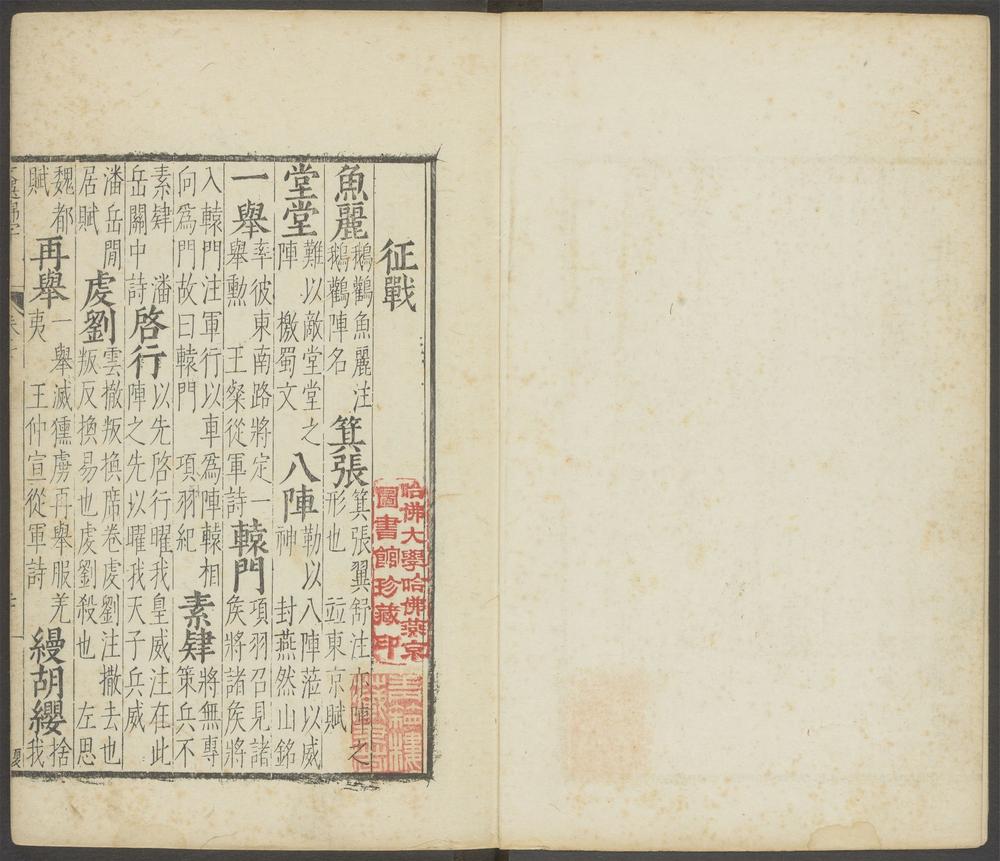 征戰
魚麗鵝鸛魚麗注鵝鸛陣名 箕張箕張翼舒注亦陣之形也 竝東京賦
堂堂難以敵堂堂之陣 檄蜀文 八陣勒以八陣蒞以威神 封燕然山銘
一舉率彼東南路將定一舉勳 王粲從軍詩 轅門項羽召見諸侯將諸侯將
入轅門注軍行以車爲陣轅相向爲門故曰轅門 項羽紀 素肄將無專策兵不
素肄 潘岳關中詩 啓行以先啓行曜我皇威注在此陣之先以曜我天子兵威
潘岳閒居賦 虔劉雲撤叛換席卷虔劉注撒去也叛反換易也虔劉殺也 左思
魏都賦 再舉一舉滅獯虜再舉服羌夷 王仲宣從軍詩 縵胡纓捨我
哈佛大學哈佛燕京
圖書館珍藏印